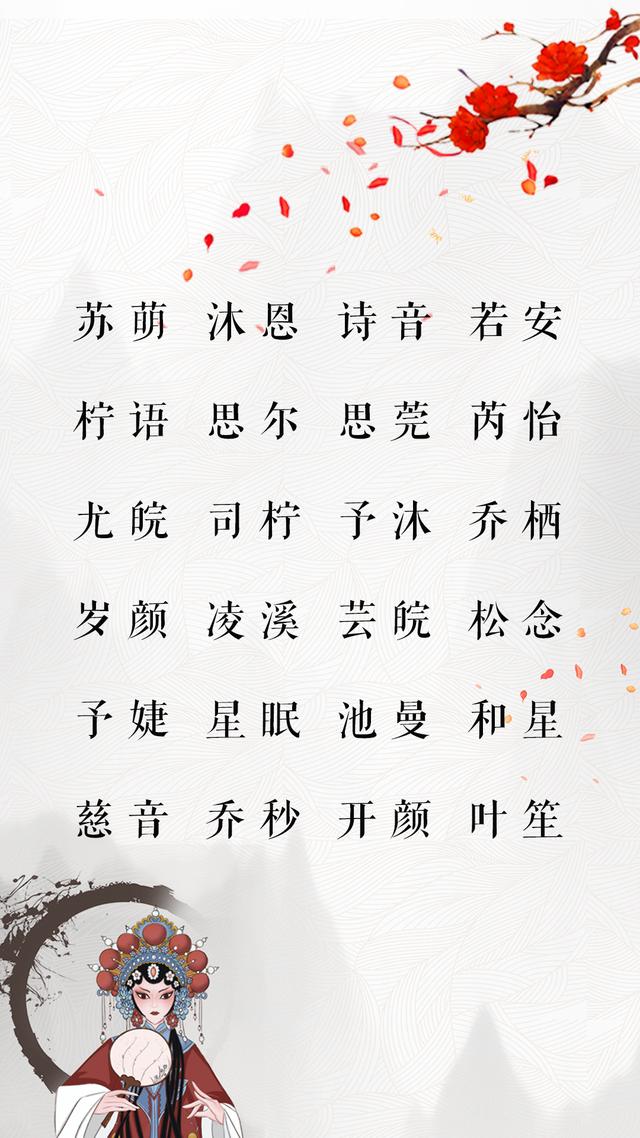 苏萌 沐恩 诗音 若安
柠语 思尔 思莞 芮怡
尤皖 司柠 予沐 乔栖
岁颜 凌溪 芸皖 松念
予婕 星眠 池曼 和星
慈音 乔秒 开颜 叶笙